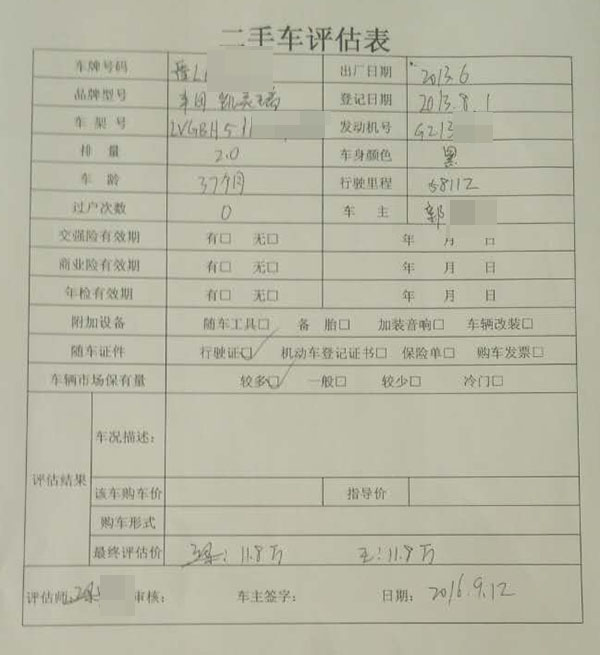 二手车评估表
车牌号码 晋L 出厂日期 2013.6
品牌型号 丰田 凯美瑞 登记日期 2013.8.1
车架号 LVGBH51 发动机号 G213
排量 2.0 车身颜色 黑
车龄 37个月 行驶里程 58112
过户次数 0 车主 郭
交强险有效期 有□ 无□ 年 月 日
商业险有效期 有□ 无□ 年 月 日
年检有效期 有□ 无□ 年 月 日
附加设备 随车工具□ 备胎□ 加装音响□ 车辆改装□
随车证件 行驶证□ 机动车登记证书□ 保险单□ 购车发票□
车辆市场保有量 较多□ 一般□ 较少□ 冷门□
评估结果
车况描述:
该车购车价 指导价
购车形式
最终评估价 :11.8万 王:11.8万
评估师: 审核: 车主签字: 日期: 2016.9.12